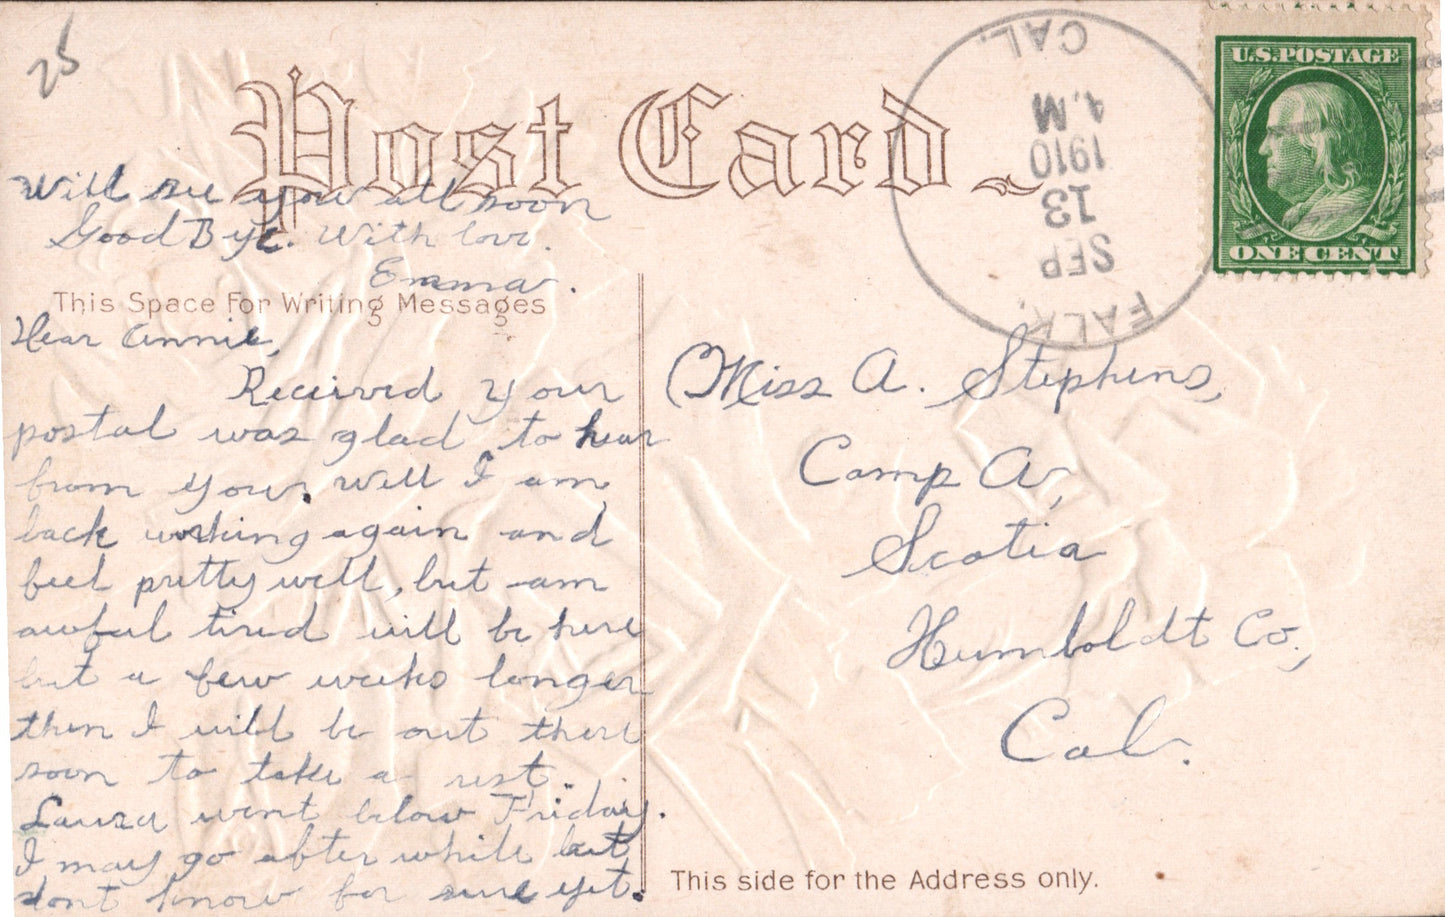 25
Post Card
U.S. POSTAGE
ONE CENT
FALK.
SEP
13
1910
A.M
CAL.
This Space For Writing Messages
Dear Annie,
Received your
postal was glad to hear
from your. Well I am
back working again and
feel pretty well, but am
awful tired will be here
but a few weeks longer
then I will be out there
soon to take a rest.
Laura went below Friday.
I may go after while but
dont know for sure yet.
Will see you all soon
Good Bye. With love.
Emma.
Miss A. Stephens,
Camp A,
Scotia
Humboldt Co.,
Cal.
This side for the Address only.